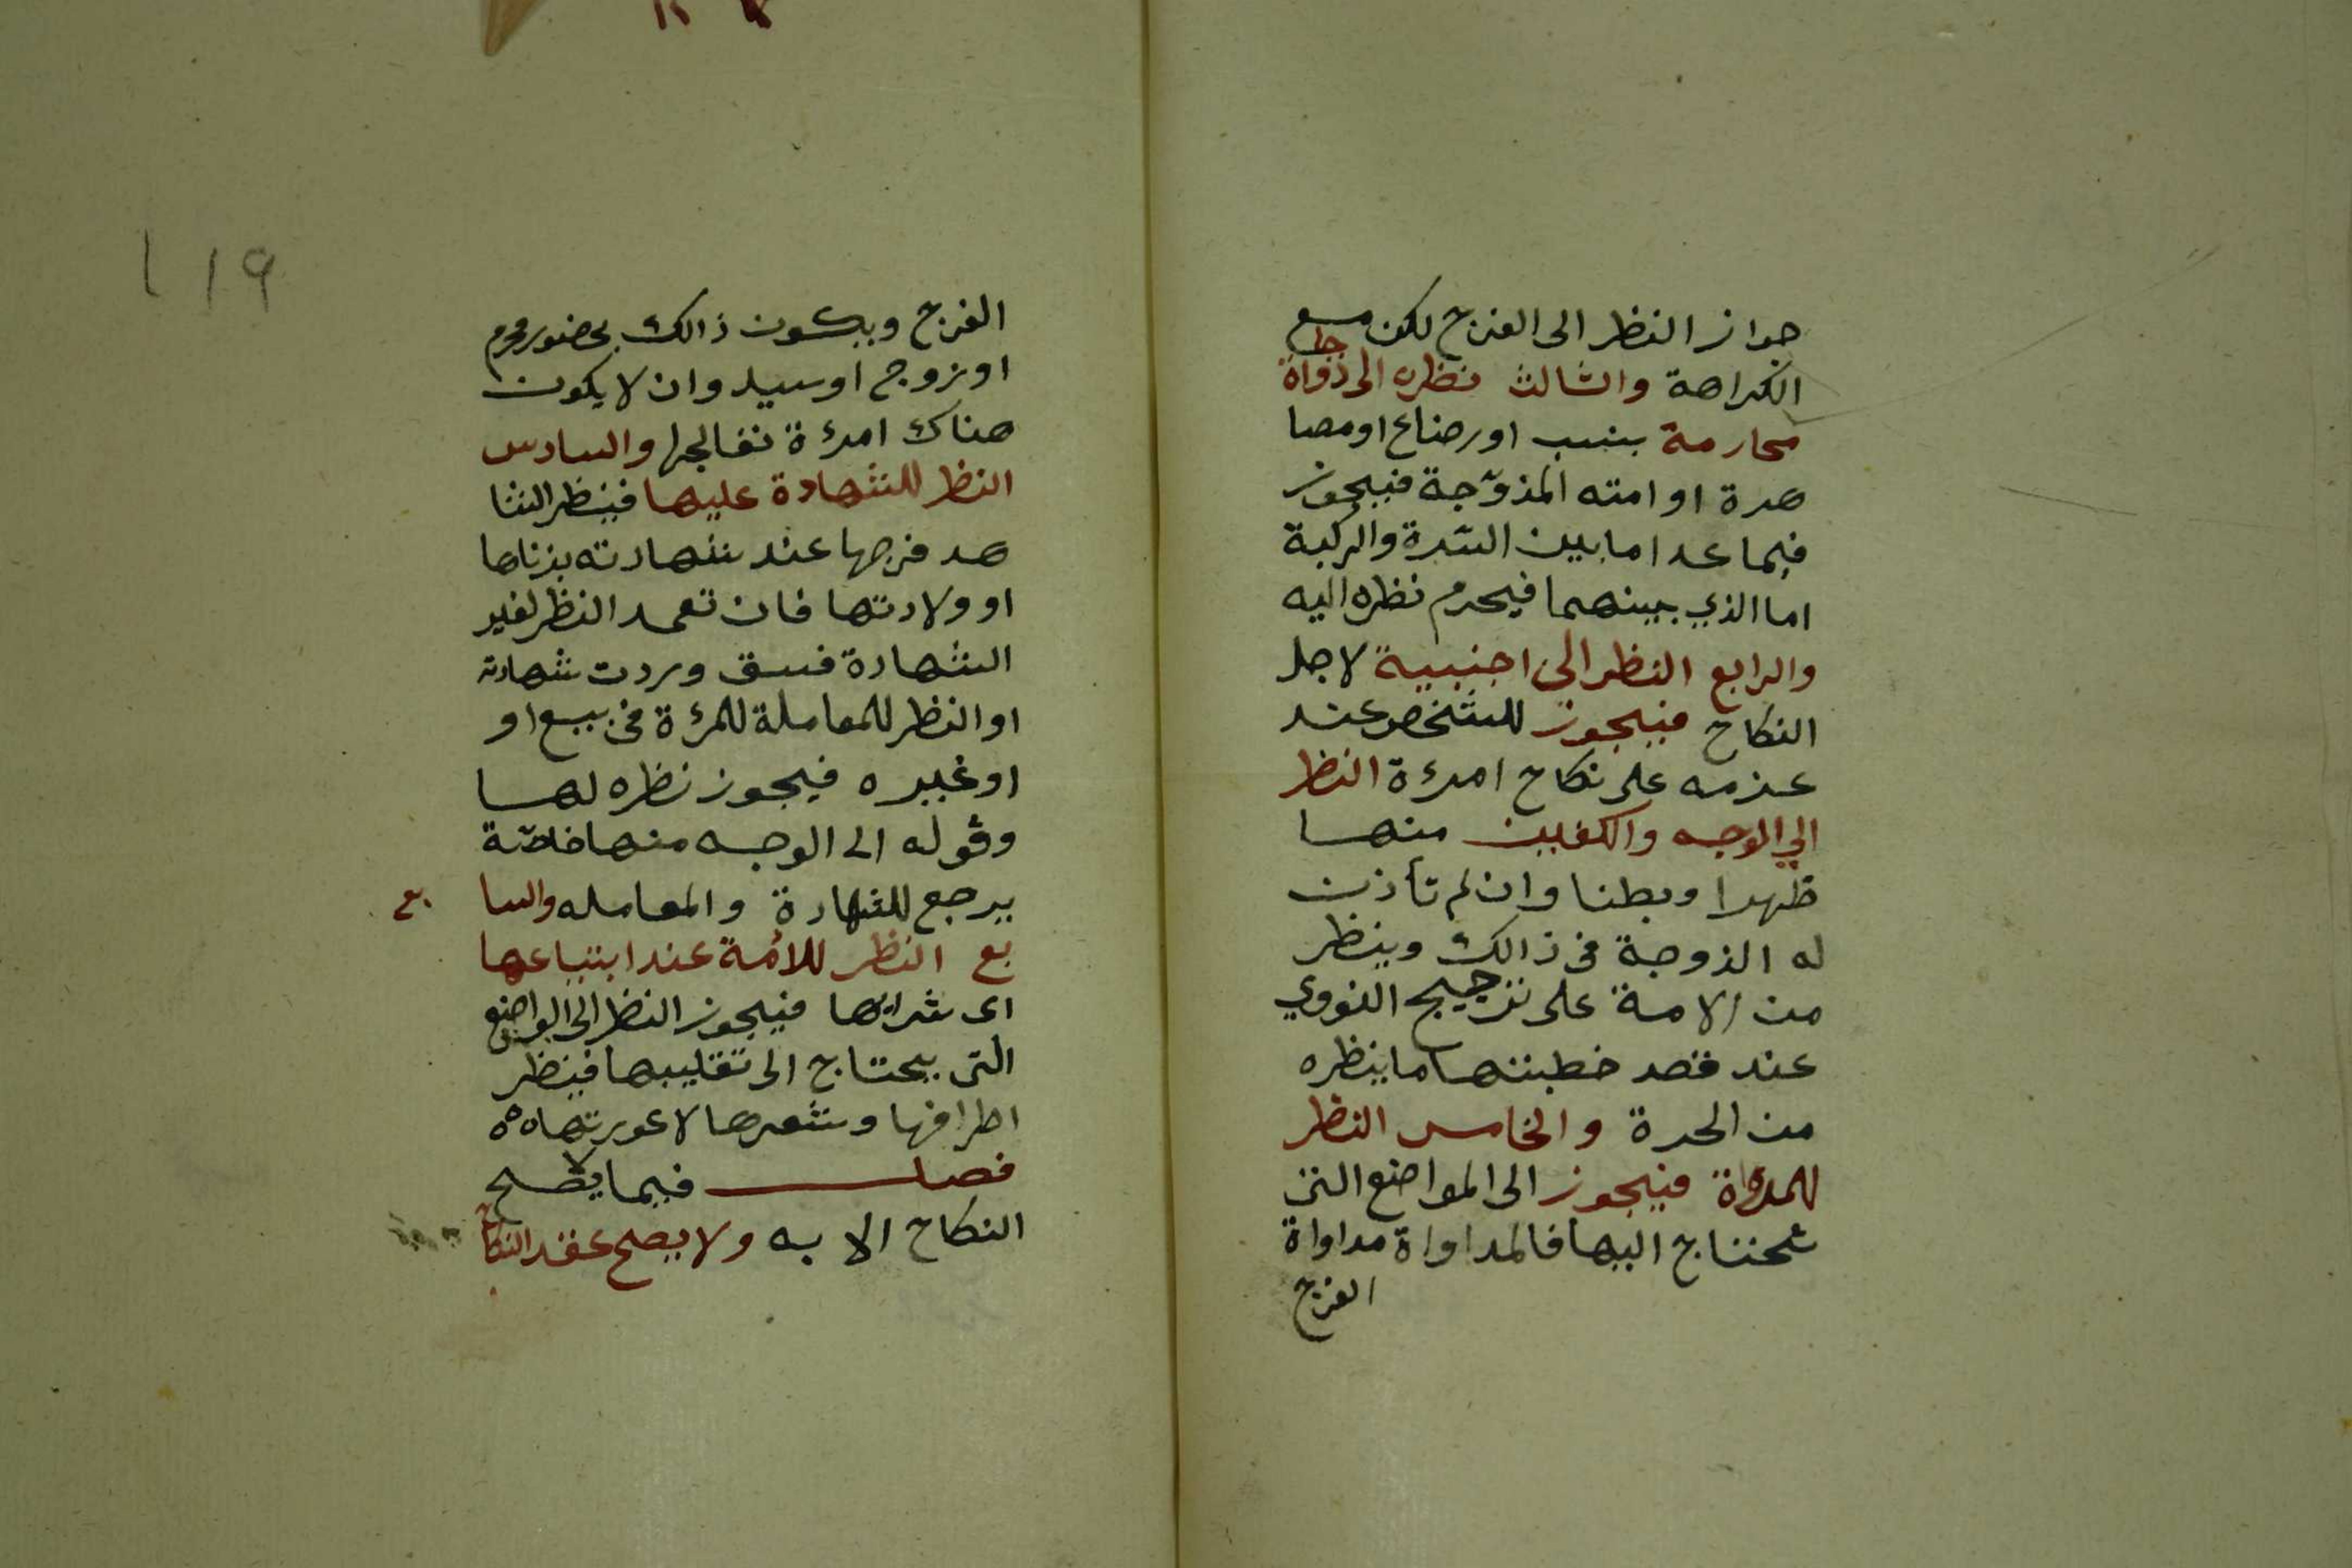 جواز النظر الى الفرج لكن مع
الكراهة والثالث نظره الى ذواة
محارمة بنسب او رضاع او مصا
هرة او امته المزوّجة فيجوز
فيما عدا ما بين السّرة والركبة
اما الذي بينهما فيحرم نظره اليه
والرابع النظر الى اجنبية لاجل
النكاح فيجوز للشخص عند
عزمه على نكاح امرءة النظر
الي الوجه والكفين منها
ظهرا وبطنا وان لم تأذن
له الزوجة في ذالك وينظر
من الامة على ترجيح النووي
عند قصد خطبتها ما ينظره
من الحرة والخامس النظر
للمداواة فيجوز الى المواضع التي
يحتاج اليها فالمداواة مداواة
الفرج
الفرج ويكون ذالك بحضور محرم
او زوج او سيد وان لا يكون
هناك امرءة تعالجها والسادس
النظر للشهادة عليها فينظر الشا
هد فرجها عند شهادته بزناها
او ولادتها فان تعمد النظر لغير
الشهادة فسق وردت شهادته
او النظر للمعاملة للمرءة في بيع او
او غيره فيجوز نظره لها
وقوله الى الوجه منها خاصّة
يرجع للشهادة والمعامله والسا
بع
بع النظر للامة عند ابتياعها
اى شرايها فيجوز النظر الى المواضع
التي يحتاج الى تقليبها فينظر
اطرافها وشعرها لا عورتها ه ه
فصل فيما لا يصح
النكاح الا به ولا يصح عقد النكاح
119